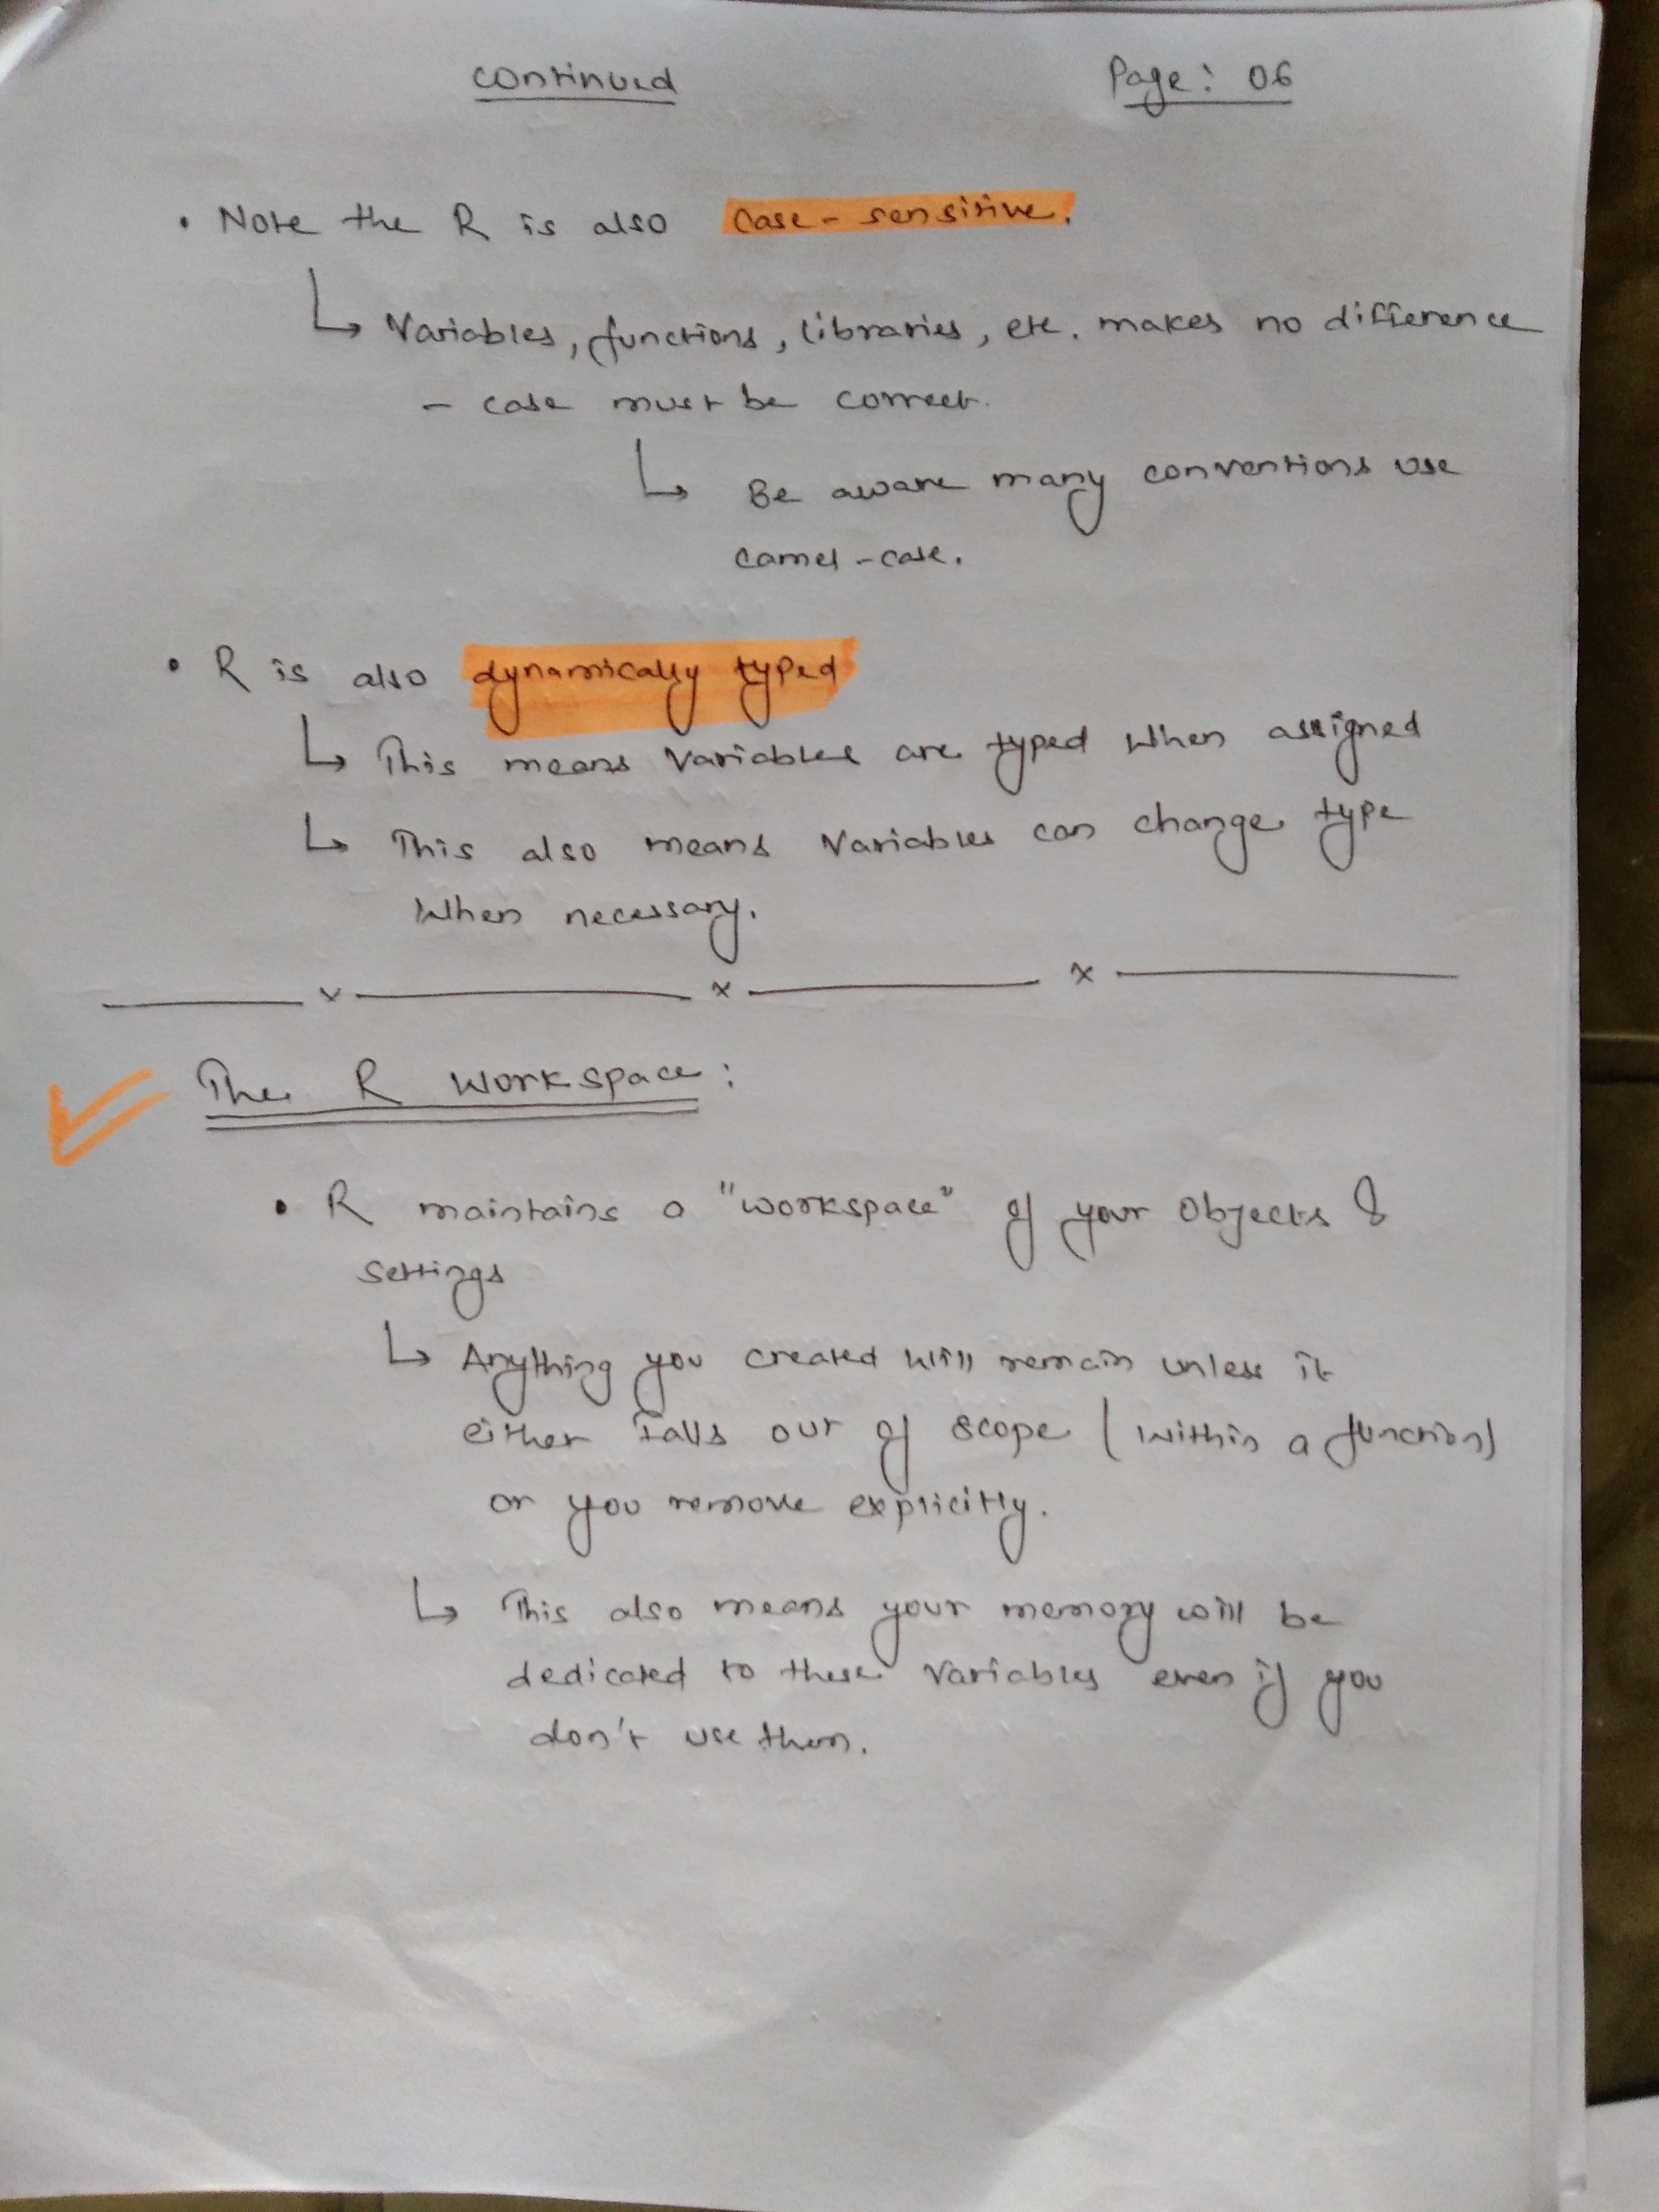 continued Page: 06
• Note the R is also case-sensitive.
↳ Variables, functions, libraries, etc. makes no difference
- case must be correct.
↳ Be aware many conventions use
camel-case.
• R is also dynamically typed
↳ This means variables are typed when assigned
↳ This also means variables can change type
when necessary.
x x x
The R Workspace:
• R maintains a "workspace" of your objects &
settings
↳ Anything you created will remain unless it
either falls out of scope (within a function)
or you remove explicitly.
↳ This also means your memory will be
dedicated to these variables even if you
don't use them.